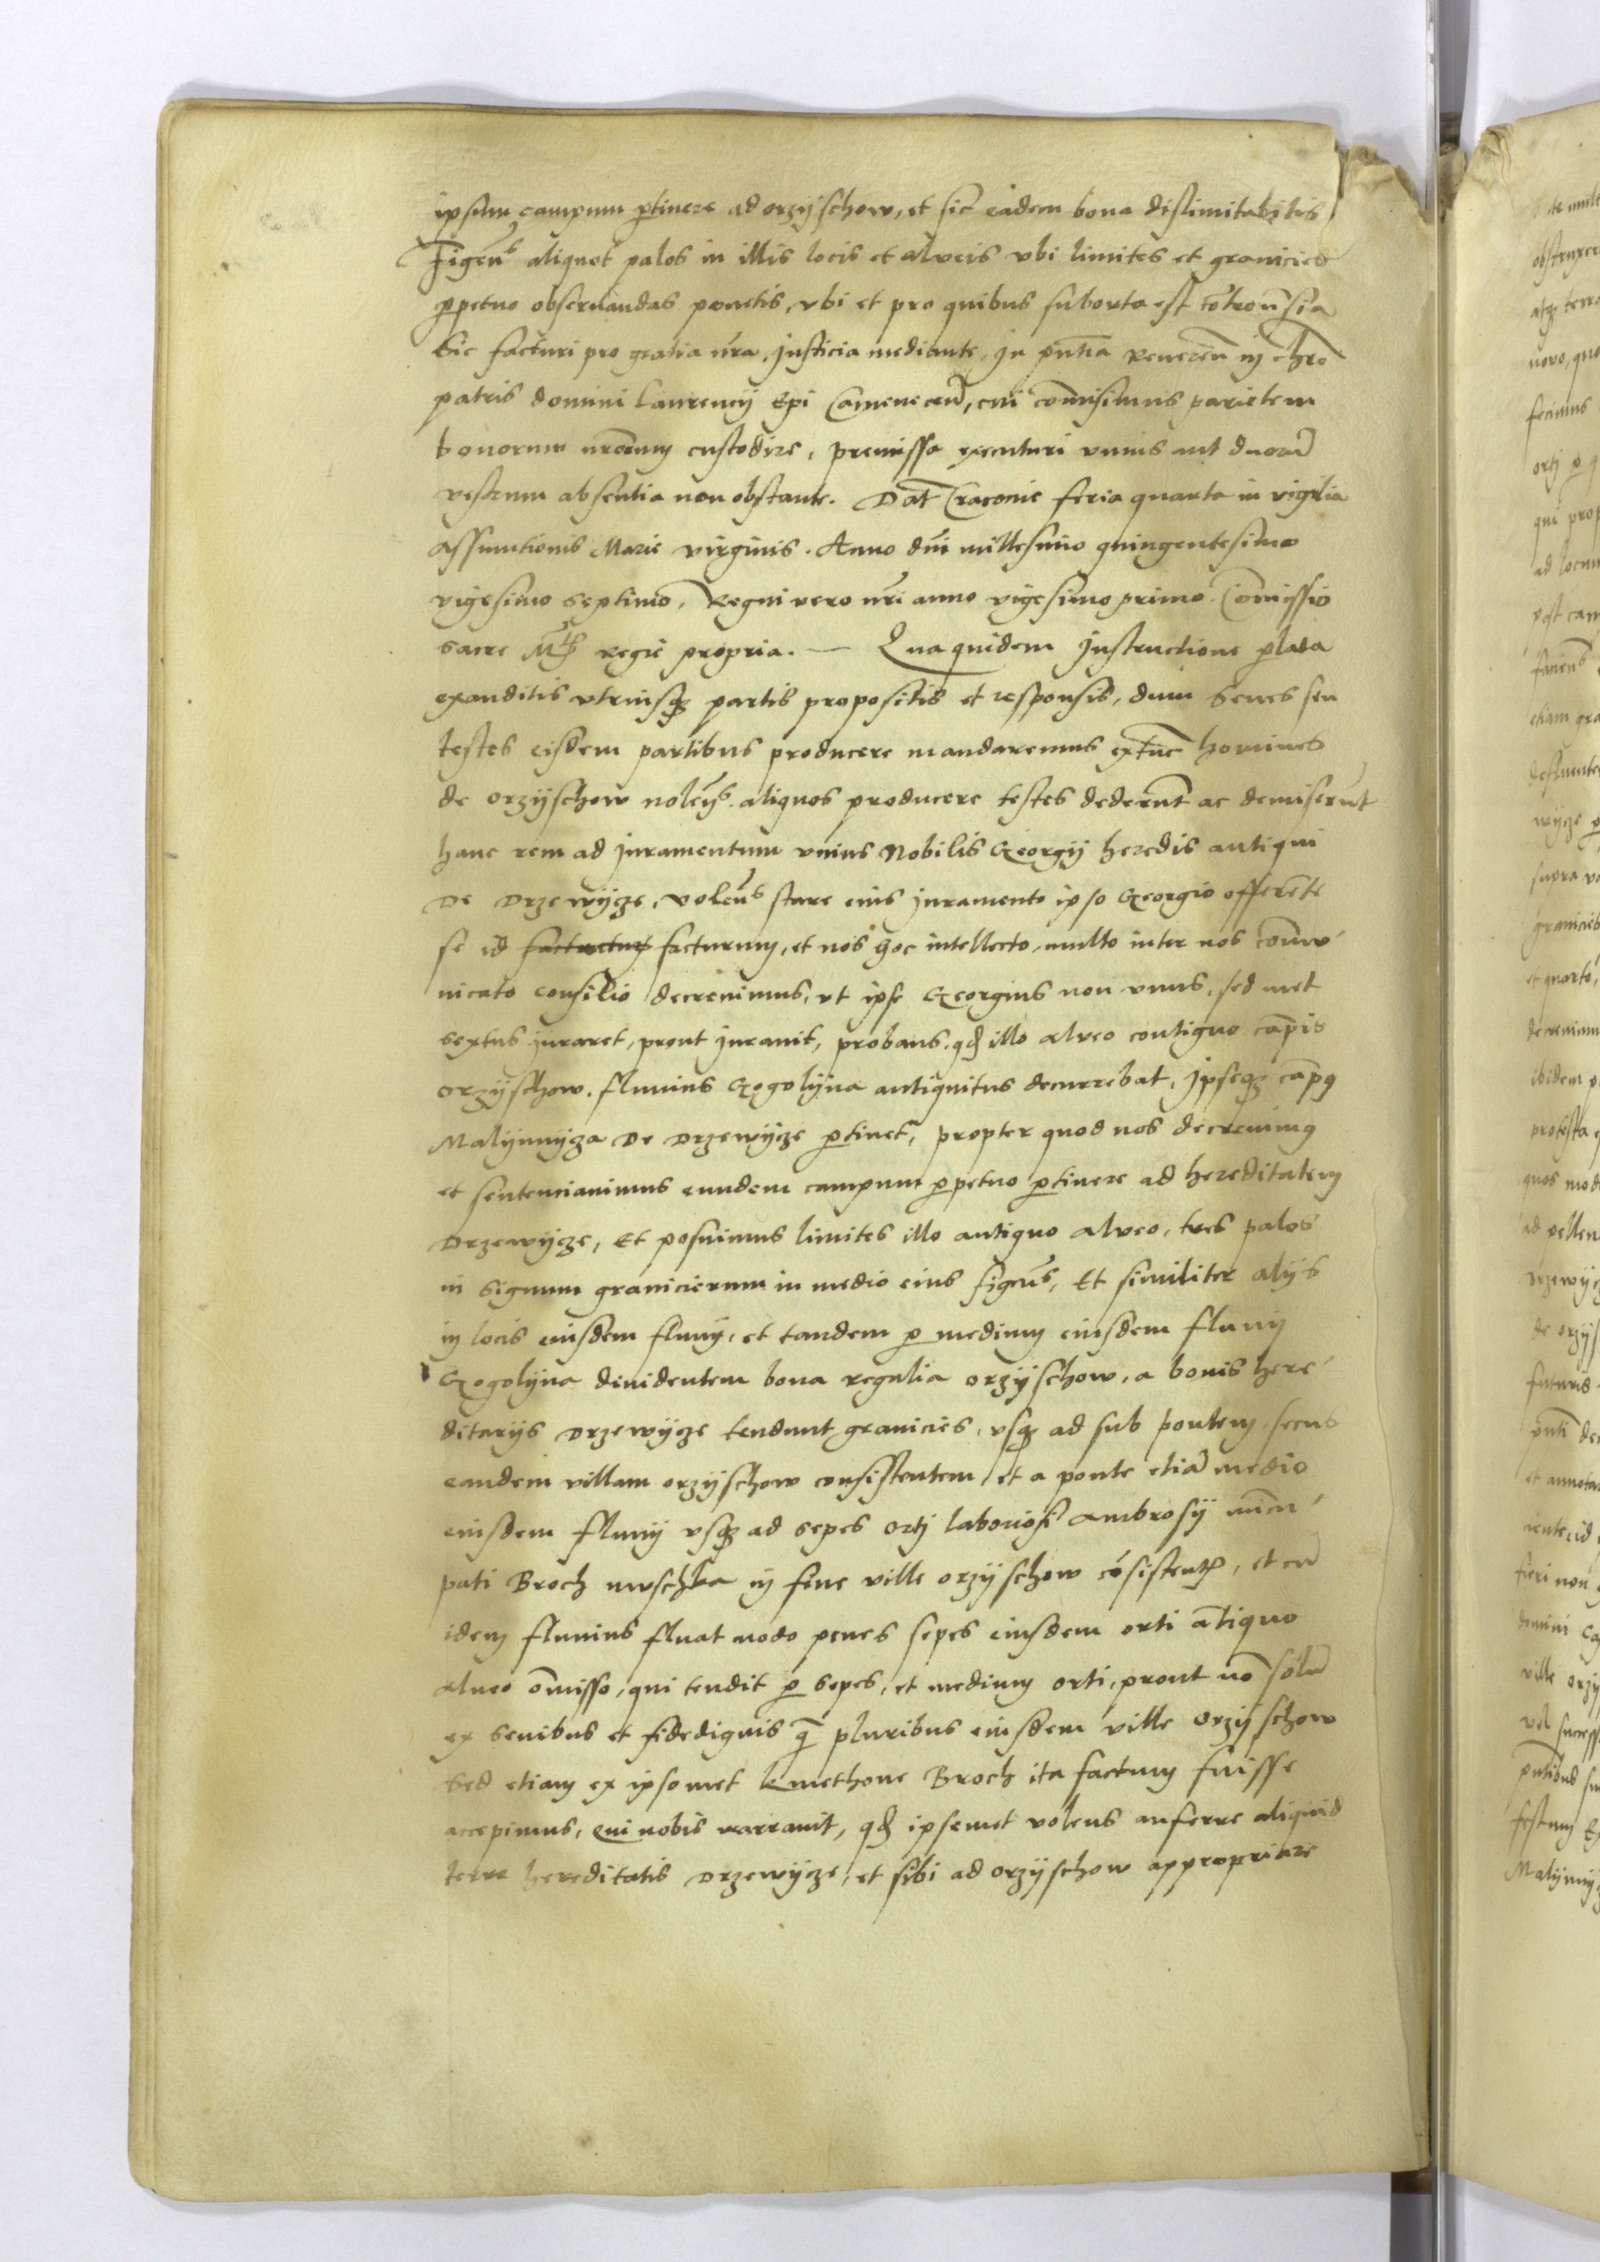 ipsum campum ꝑtinere ad orzyschow, et sic eadem bona dislimitabitis
Figen̄s aliquot palos in illis locis et alveis vbi limites et granicies
ꝑpetuo obseruandas ponetis, vbi et pro quibus suborta est cōtrou̅sia
Sic facturi pro gratia n̄ra, justicia mediante, Jn p̄ntia Reueren̄ in chr̄o
patris domini Laurencij Ep̄i Camenecen̄, cui com̄isimus parietem
bonorum n̄rorum custodire, premissa executuri vnius aut duorū
vestrum absentia non obstante. Dat̄ Cracouie feria quarta in vigilia
Assumtionis Marie virginis. Anno dn̄i millesimo quingentesimo
vigesimo septimo, Regni vero n̄ri anno vigesimo primo. Com̄issio
Sacre M̄tis Regie propria. — Quaquidem Jnstructione ꝑlata
exauditis vtriusqꝫ partis propositis et responsis, dum Senes seu
testes eisdem partibus producere mandaremus extūc homines
de orzyschow nolen̄s aliquos producere testes dederūt ac demiserūt
hanc rem ad Juramentum vnius Nobilis Georgij heredis antiqui
De Drzewycze, volen̄s stare eius juramento ipso Georgio offerēte
se id facturum, et nos hoc intellecto, multo inter nos com̄u
nicato consilio decreuimus, vt ipse Georgius non vnus, sed met
sextus juraret, prout Jurauit, probans, qd̄ illo alveo contiguo cāpis
Orzyschow, fluuius Gogolyna antiquitus decurrebat, Jpseqꝫ cāpꝰ
Malynnycza De Drzewycze ꝑtinet, propter quod nos decreuimꝰ
et sentenciauimus eundem campum ꝑpetuo ꝑtinere ad hereditatem
Drzewycze, Et posuimus limites illo antiquo alveo, tres palos
in signum granicierum in medio eius figen̄s, Et similiter alijs
in locis eiusdem fluuij, et tandem ꝑ medium eiusdem fluuij
Gogolyna diuidentem bona regalia orzyschow, a bonis here
ditarijs Drzewycze tendunt granicies, vsqꝫ ad sub pontem secus
eandem villam orzyschow consistentem, et a ponte etiā medio
eiusdem fluuij vsqꝫ ad sepes orti laboriosi Ambrosij nūcu
pati Broch in fine ville orzyschow cōsisteñ, et cū
idem fluuius fluat modo penes sepes eiusdem orti ātiquo
alueo om̄isso, qui tendit ꝑ sepes, et medium orti, prout nō solū
ex senibus et fidedignis q̄ pluribus eiusdem ville orzyschow
sed etiam ex ipsomet kmethone Broch ita factum fuisse
accepimus, qui nobis narrauit, qd̄ ipsemet volens auferre aliquid
terre hereditatis Drzewycze, et sibi ad orzyschow appropriare